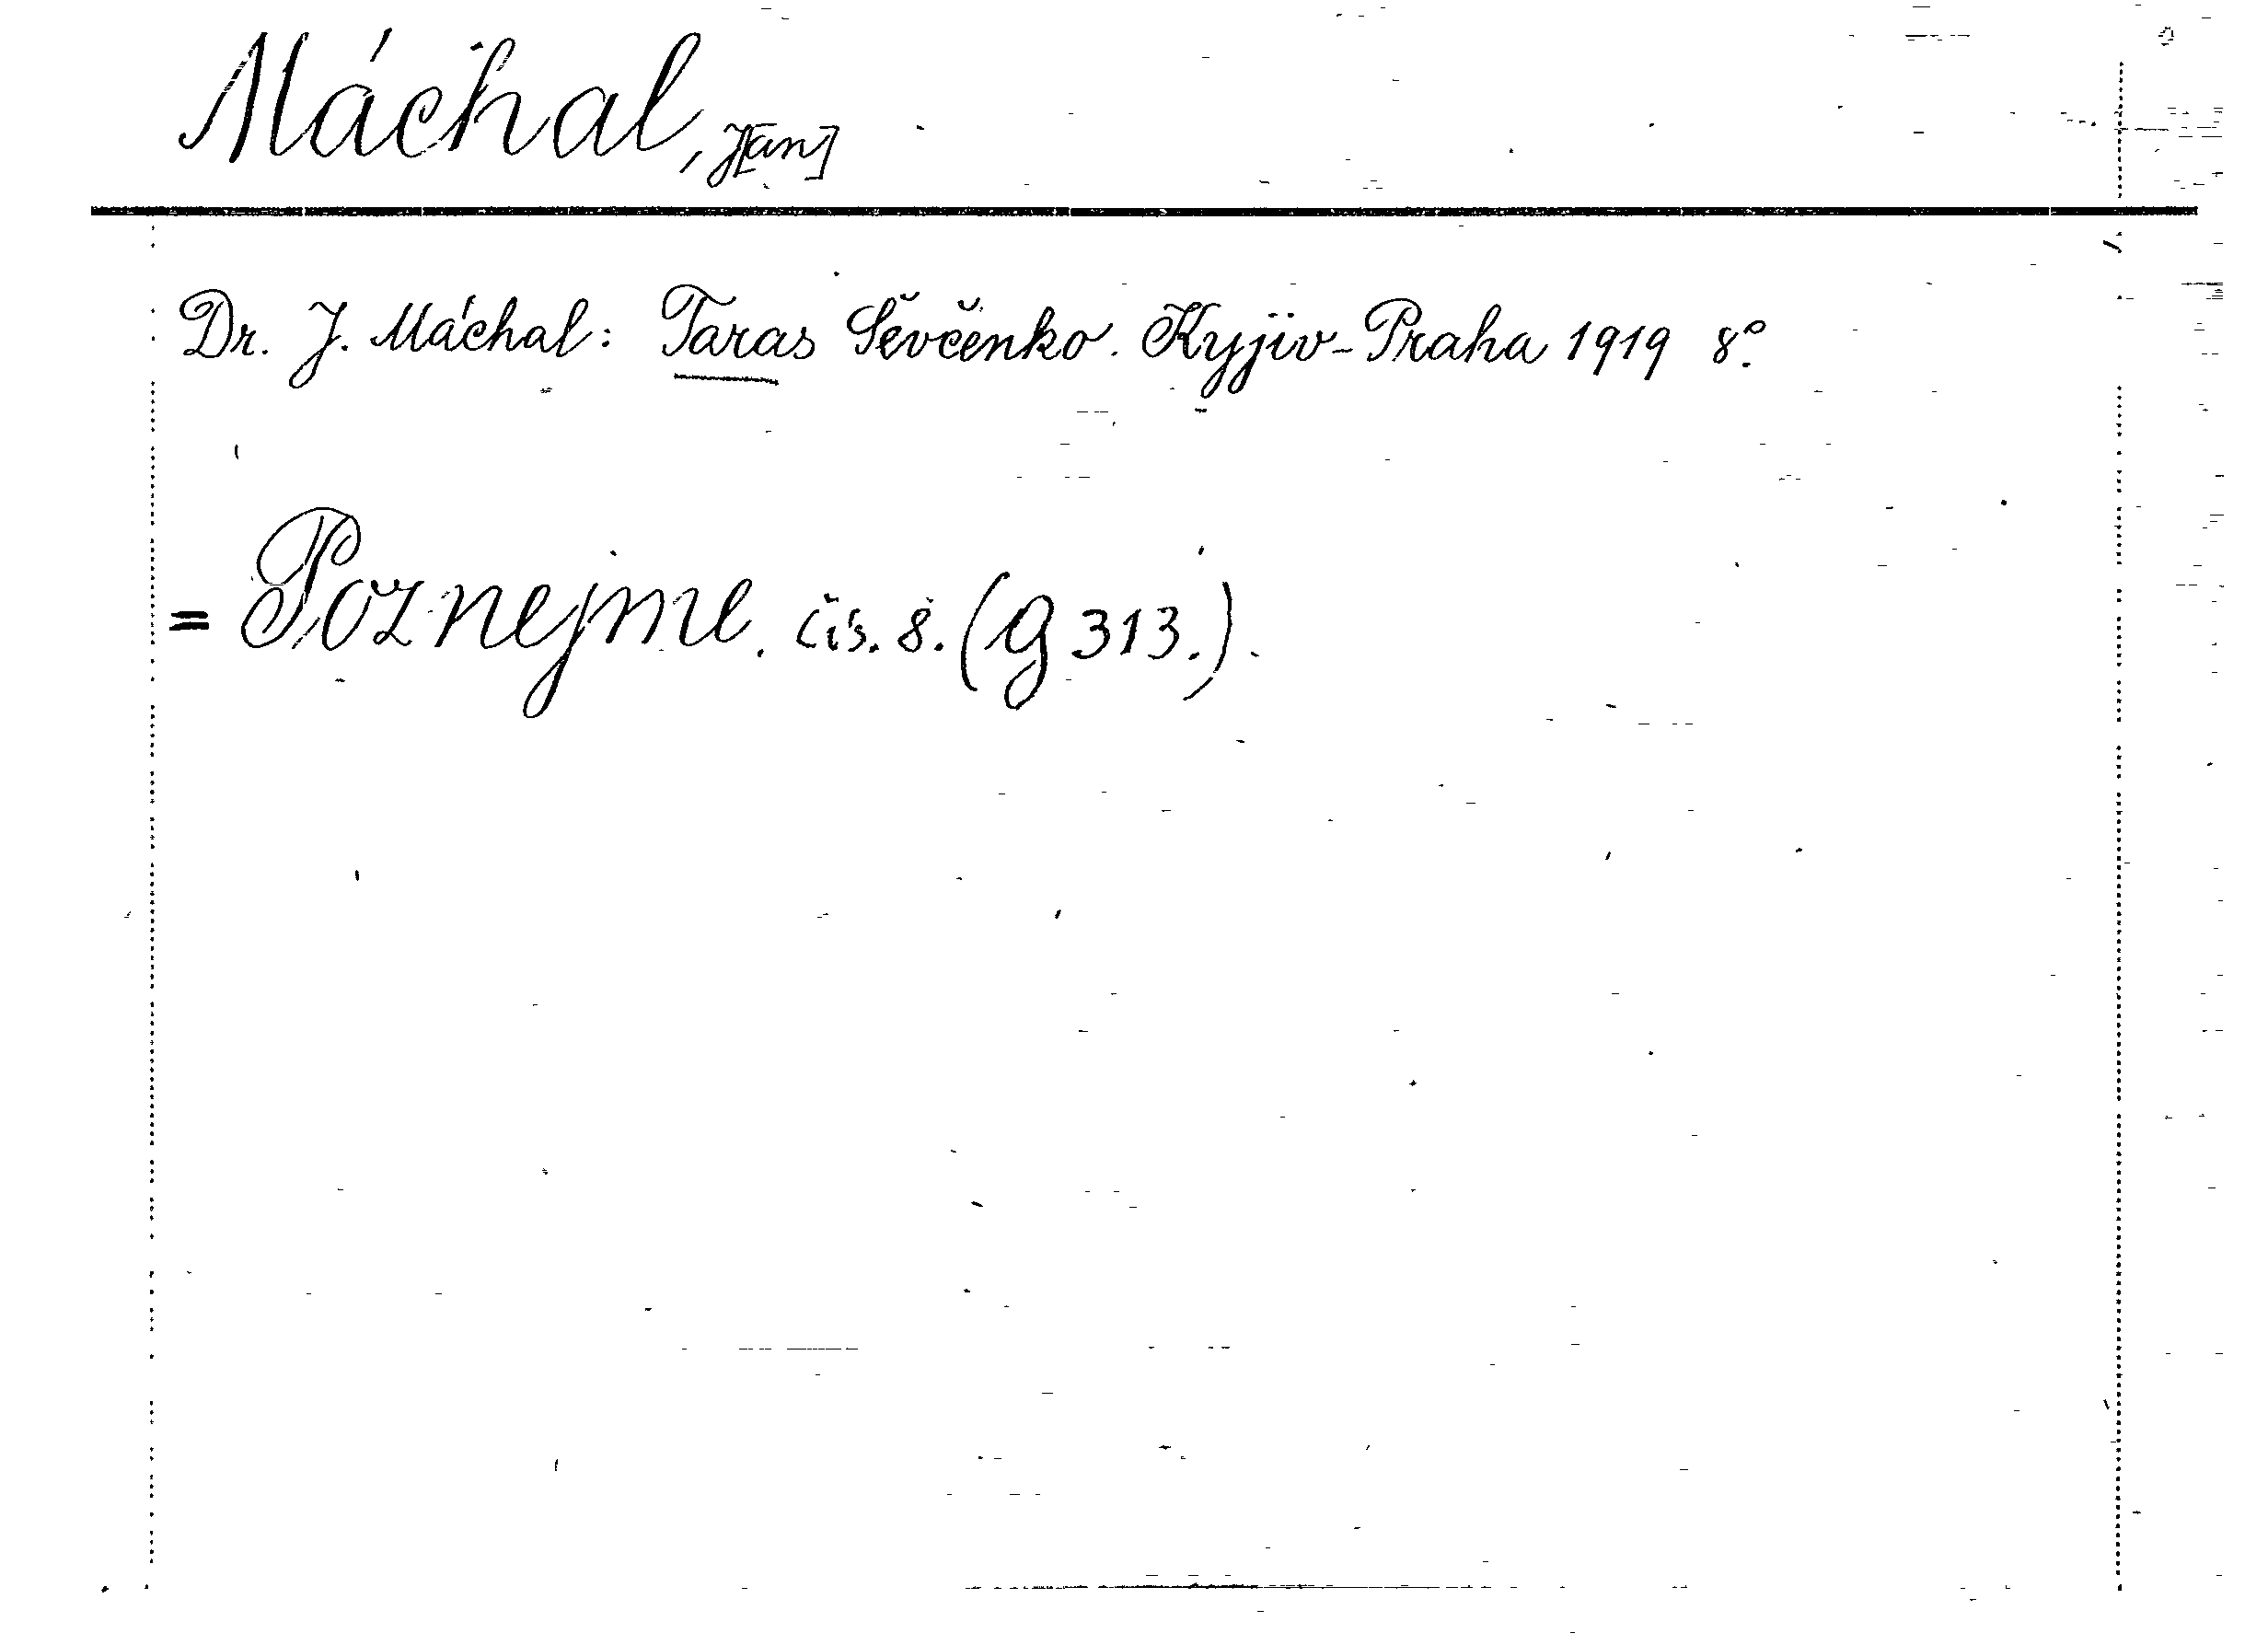 Máchal, J[an]
Dr. J. Máchal: Taras Ševčenko. Kyjiv-Praha 1919 8°.
= Poznejme. čís. 8. (G 313.).